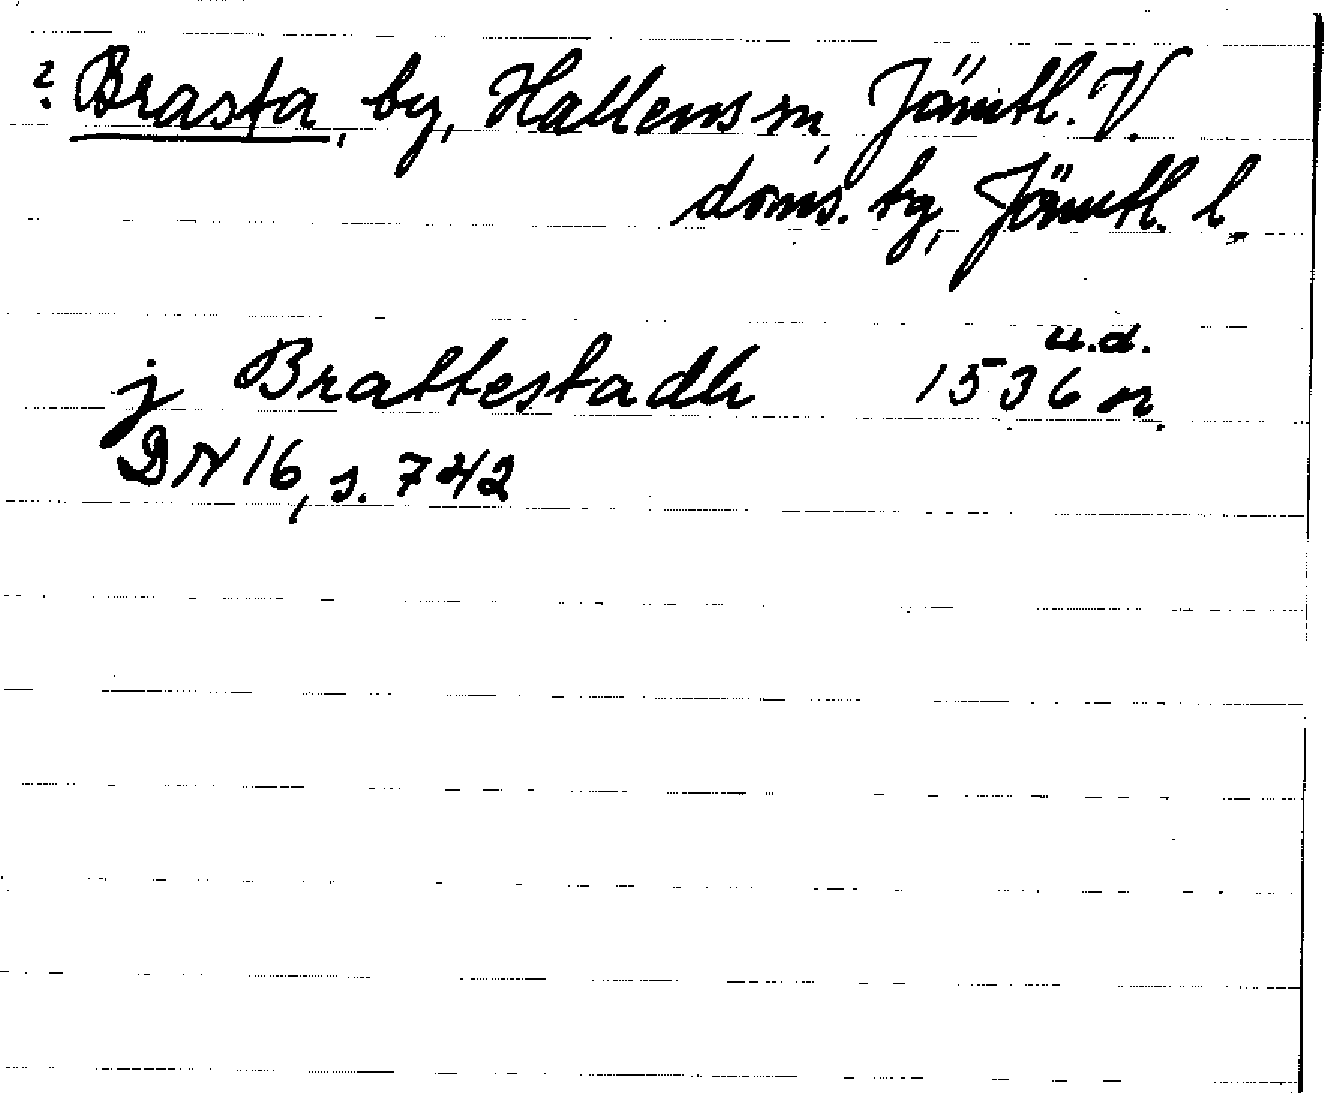 ? Brasta, by, Hallens sn, Jämtl. V.
doms. tg, Jämtl. l.
j Brattestadh 1536 u.d. or.
DN 16, s. 742